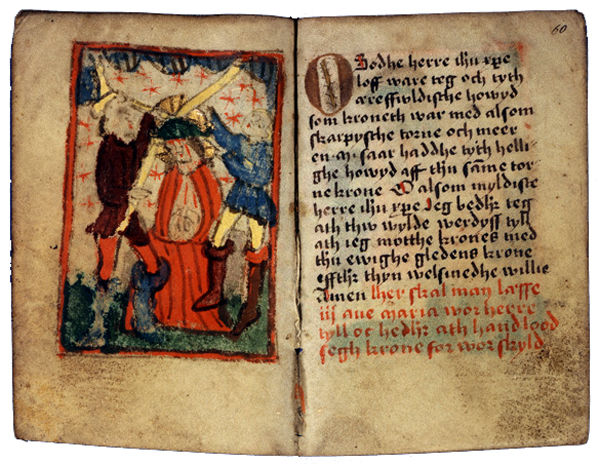 60
O Godhe herre ihu xpe
loff ware teg och tyth
æreffwldische howyd
som kroneth war med alsom
skarpysthe torne och meer
en m saar haddhe tyth helli
ghe howyd aff thn same tor
ne krone O alsom myldiste
herre ihu xpe Jeg bedhr teg
ath thw wylde werdyss tyll
ath ieg motthe krones med
thn ewighe gledens krone
effthr thyn welsinedhe willie
Amen Her skal man læsse
iij aue maria wor herre
tyll ot hedhr ath hand lood
segh krone for wor skyld